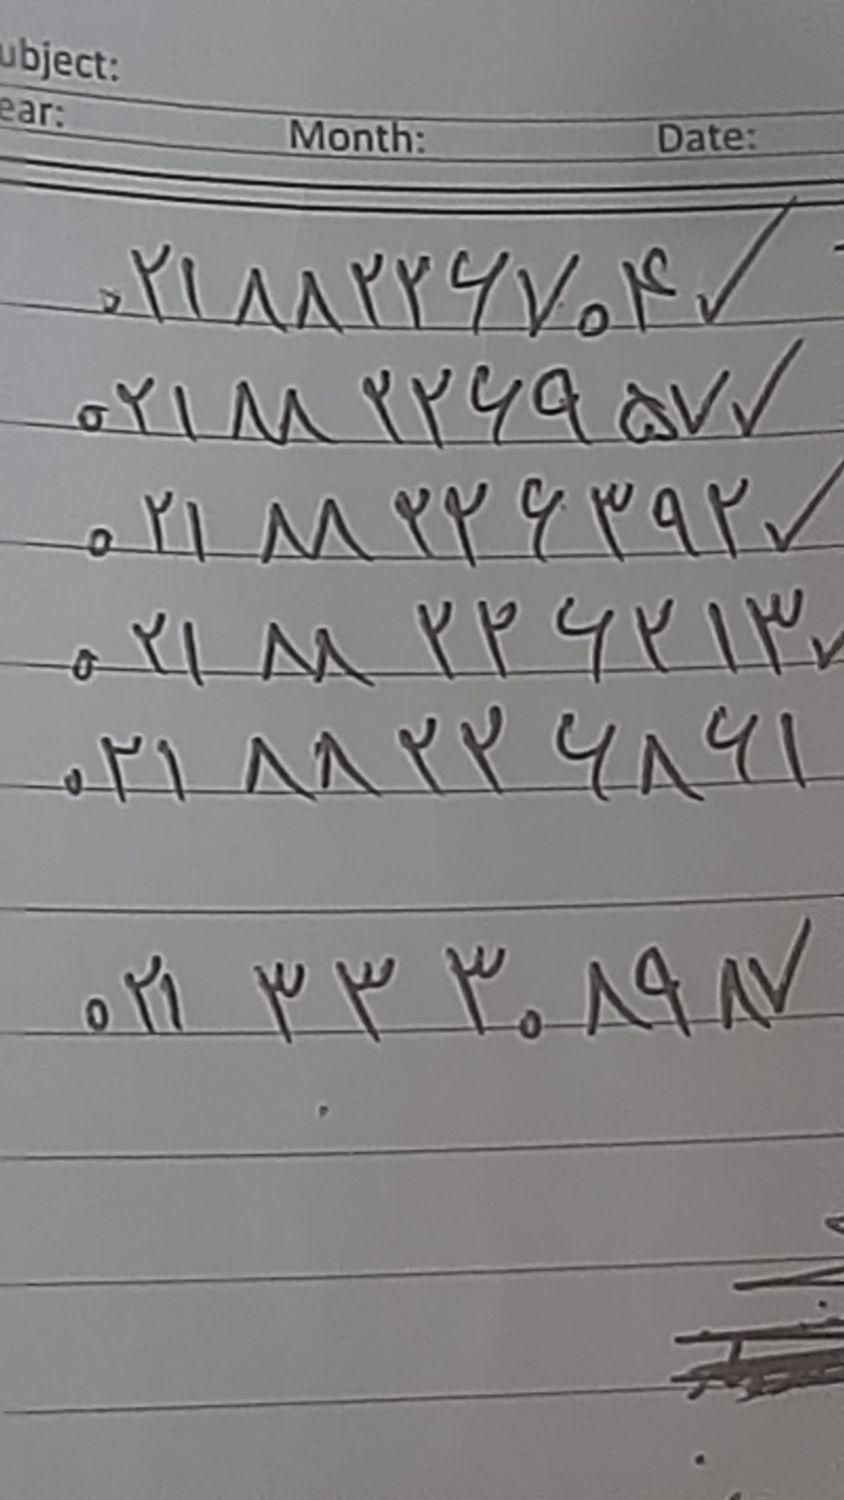 ubject:
ear: Month: Date:
۰۲۱۸۸۲۲۶۷۰۴ ✓
۰۲۱ ۸۸ ۲۲۶۹ ۵۷ ✓
۰۲۱ ۸۸ ۲۲۶۳۹۲ ✓
۰۲۱ ۸۸ ۲۲۶۲۱۳ ✓
۰۲۱ ۸۸۲۲۶۸۶۱
۰۲۱ ۳۳۳۰۸۹۸۷